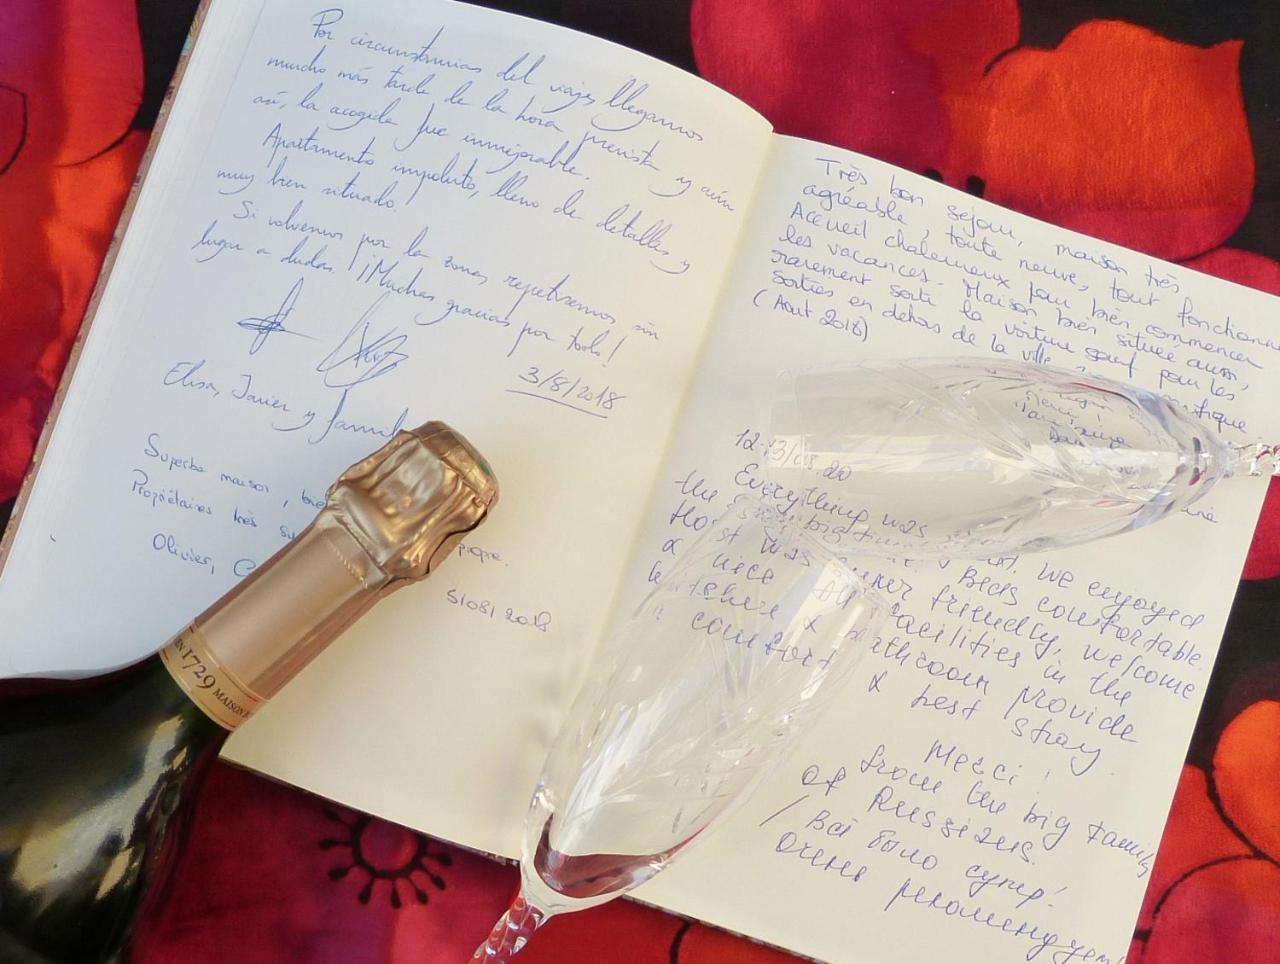 Por circunstancias del viaje, llegamos
mucho más tarde de la hora prevista y aún
así, la acogida fue inmejorable.
Apartamento impoluto, lleno de detalles y
muy bien situado!
Si volvemos por la zona, repetiremos sin
lugar a dudas. ¡¡Muchas gracias por todo!
3/8/2018
Elisa, Javier y famil
Superbe maison, bie
Propriétaires très su propre.
Olivier, C
5/08/2018
EN 1729 MAISON
Très bon séjour, maison très
agréable, toute neuve, tout fonctionne
Accueil chaleureux pour bien commencer
les vacances. Maison bien située aussi,
rarement sorti la voiture sauf pour les
sorties en dehors de la ville
(Aout 2018)
Everything was
the big We enjoyed
Host was super friendly, welcome
Beds comfortable.
& nice All facilities in the
kitchen & bathroom provide
comfort & best stay
Merci!
from the big family
of Russians.
/ Всё было супер!
Очень рекомендуем